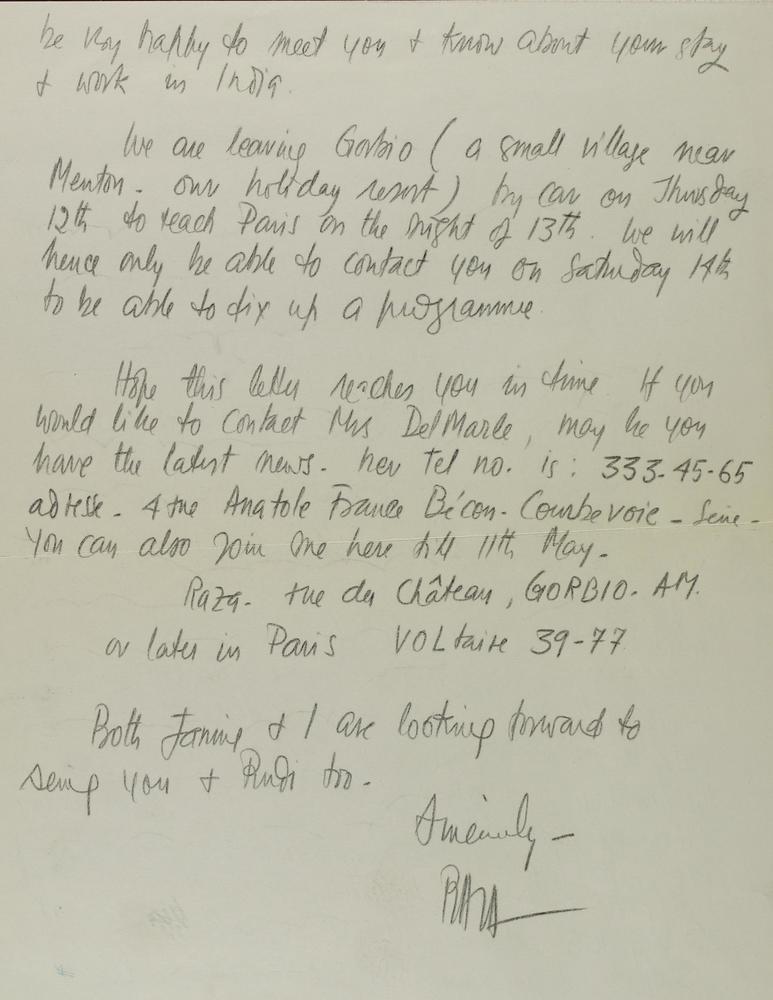 be very happy to meet you + know about your stay
+ work in India.
We are leaving Gorbio ( a small village near
Menton - our holiday resort ) by car on Thursday
12th to reach Paris on the night of 13th. We will
hence only be able to contact you on Saturday 14th
to be able to fix up a programme.
Hope this letter reaches you in time If you
would like to contact Mrs DelMarle, may be you
have the latest news. her Tel no. is : 333-45-65
adresse - 4 rue Anatole France Bécon - Courbevoie - Seine -
You can also join me here till 11th May.
Raza - rue du Château, GORBIO. AM.
or later in Paris VOLtaire 39-77
Both Janine + I are looking forward to
seing you + Rudi too.
Sincerely -
RAZA